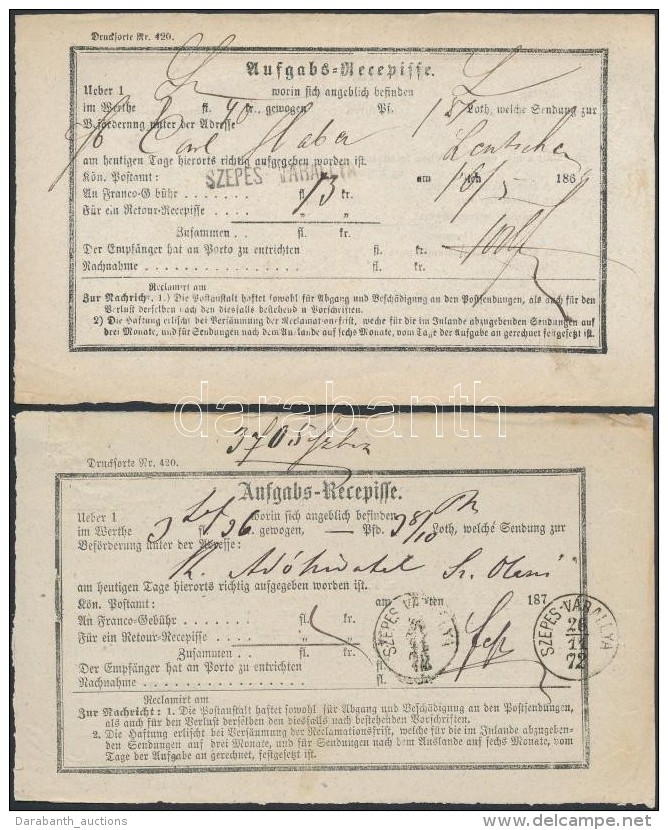 Drucksorte Nr. 420.
Aufgabs-Recepisse.
Ueber 1 worin sich angeblich befinden
im Werthe fl. 40 kr., gewogen Pf. Loth, welche Sendung zur
Beförderung unter der Adresse
Carl Haber Leutschau
am heutigen Tage hierorts richtig aufgegeben worden ist.
SZEPES VÁRALLYA
Kön. Postamt: am 16/5 ten 186
An Franco-G bühr . . . . . . . fl. 13 kr.
Für ein Retour-Recepisse . . . . „ „
Zusammen . . fl. kr.
Der Empfänger hat an Porto zu entrichten fl. kr.
Nachnahme . . . . . . . . . . . . . . . . fl. kr.
Reclamirt am
Zur Nachricht. 1.) Die Postanstalt haftet sowohl für Abgang und Beschädigung an den Postsendungen, als auch für den
Verlust derselben nach den diesfalls bestehend n Vorschriften.
2) Die Haftung erlischt bei Versäumung der Reclamationsfrist, welche für die im Inlande abzugebenden Sendungen auf
drei Monate, und für Sendungen nach dem Auslande auf sechs Monate, vom Tage der Aufgabe an gerechnet festgesetzt ist.
darabanth
3705
Drucksorte Nr. 420.
Aufgabs-Recepisse.
Ueber 1 worin sich angeblich befinden
im Werthe 3 fl. 36 kr. gewogen, — Pfd. 3 8/10 Loth, welche Sendung zur
Beförderung unter der Adresse:
K. Adóhivatal Sz. Olaszi
am heutigen Tage hierorts richtig aufgegeben worden ist.
Kön. Postamt: am ten 187
An Franco-Gebühr: . . . . . . . fl. kr.
Für ein Retour-Recepisse . . . . „ „
SZEPES-VÁRALLYA
SZEPES-VÁRALLYA
26
11
72
Zusammen fl. kr.
Der Empfänger hat an Porto zu entrichten fl.
Nachnahme . . . . . . . . . . . . . . . . fl. kr.
Reclamirt am
Zur Nachricht: 1. Die Postanstalt haftet sowohl für Abgang und Beschädigung an den Postsendungen,
als auch für den Verlust derselben den diesfalls nach bestehenden Vorschriften.
2. Die Haftung erlischt bei Versäumung der Reclamationsfrist, welche für die im Inlande abzugeben-
den Sendungen auf drei Monate, und für Sendungen nach dem Auslande auf sechs Monate, vom
Tage der Aufgabe an gerechnet, festgesetzt ist.
Darabanth_auctions
www.delcampe.net